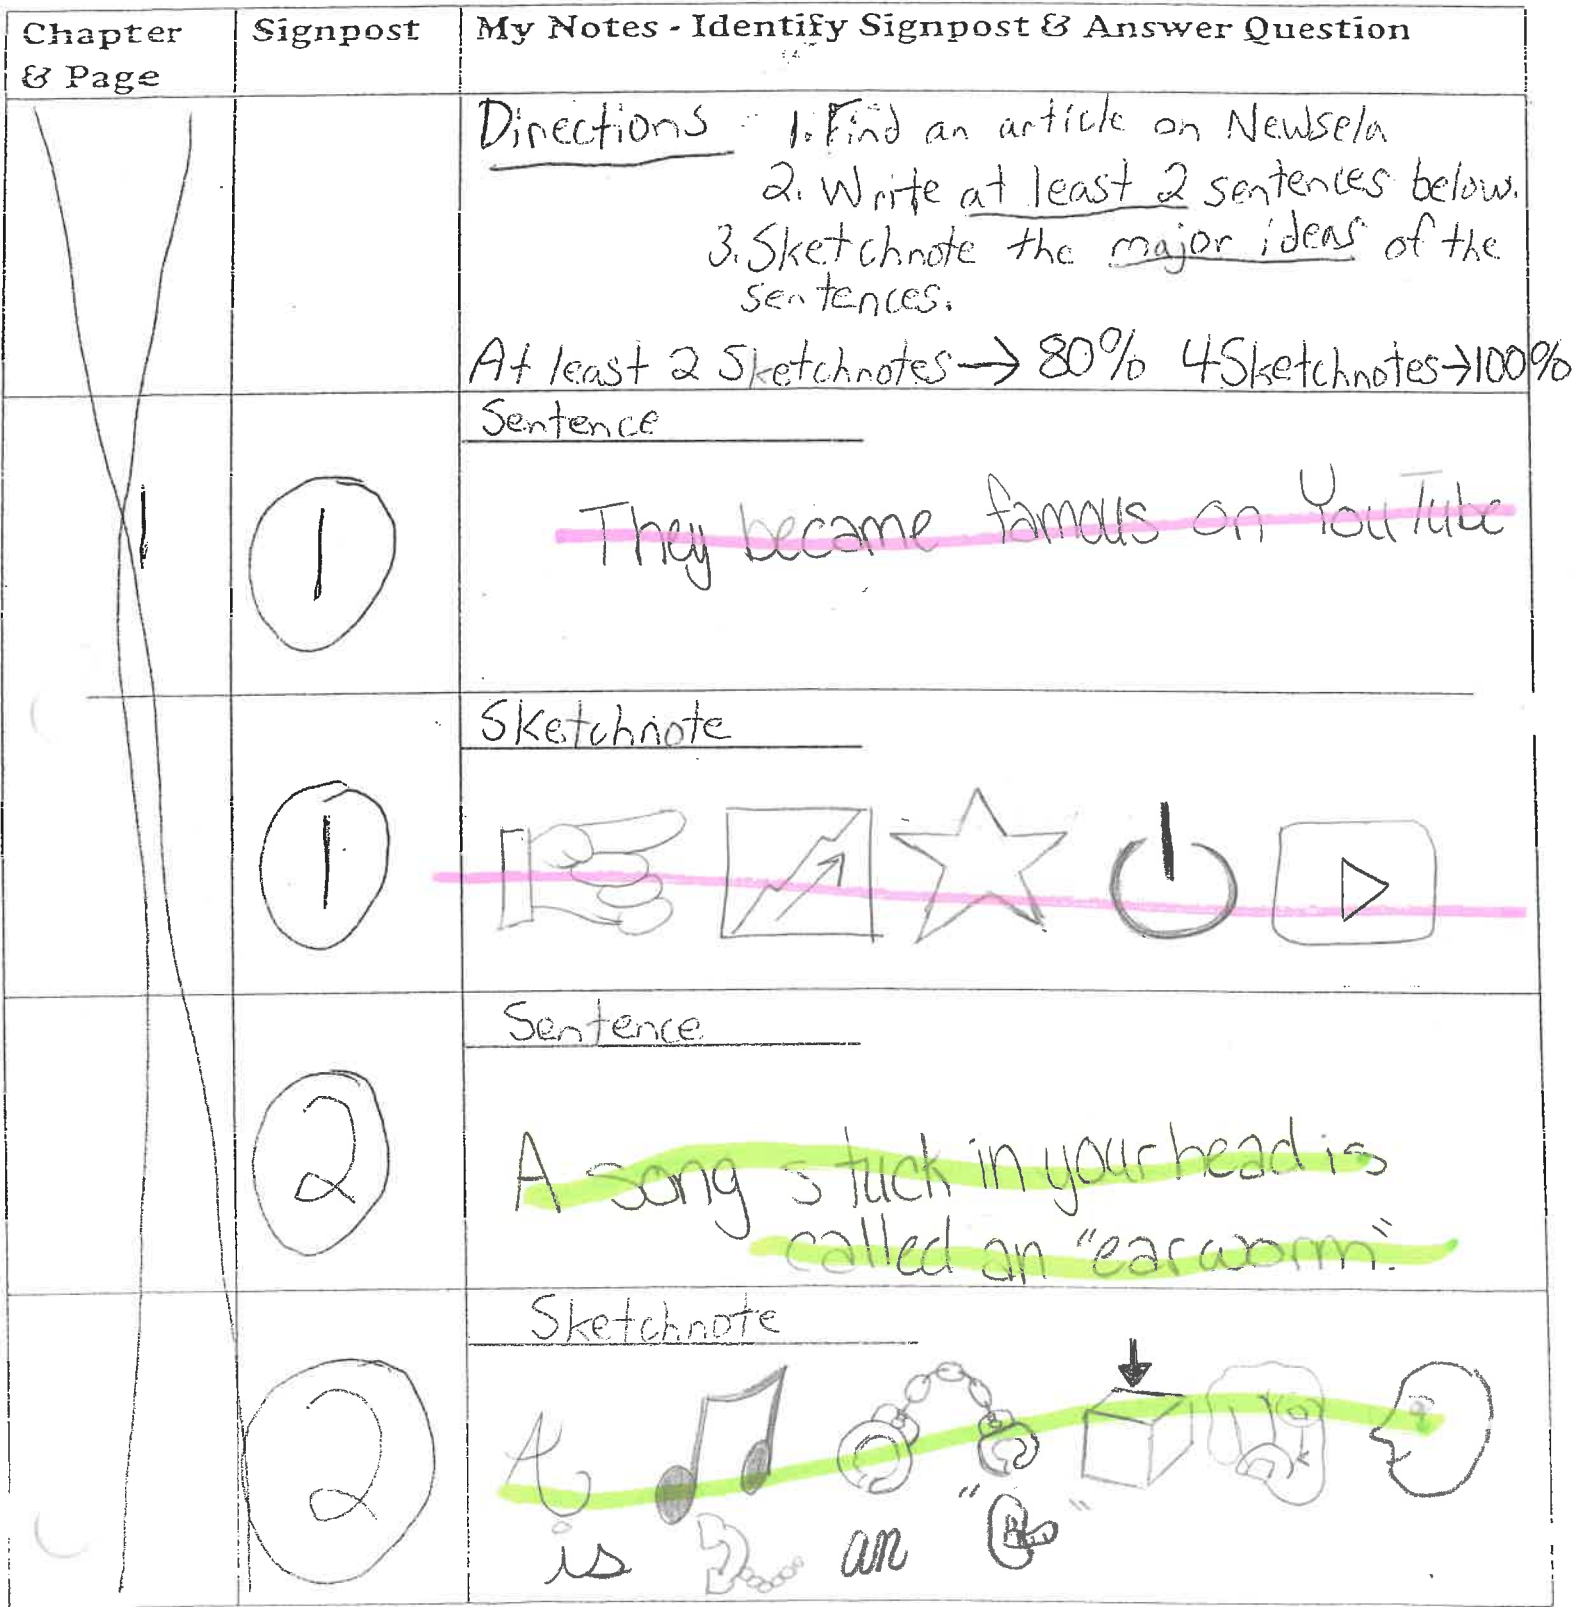 Chapter & Page
Signpost
My Notes - Identify Signpost & Answer Question
Directions 1. Find an article on Newsela
2. Write at least 2 sentences below.
3. Sketchnote the major ideas of the
sentences.
At least 2 Sketchnotes → 80% 4 Sketchnotes → 100%
Sentence
1
1
They became famous on YouTube
Sketchnote
1
Sentence
2
A song stuck in your head is
called an "earworm".
Sketchnote
2
A
is an " "